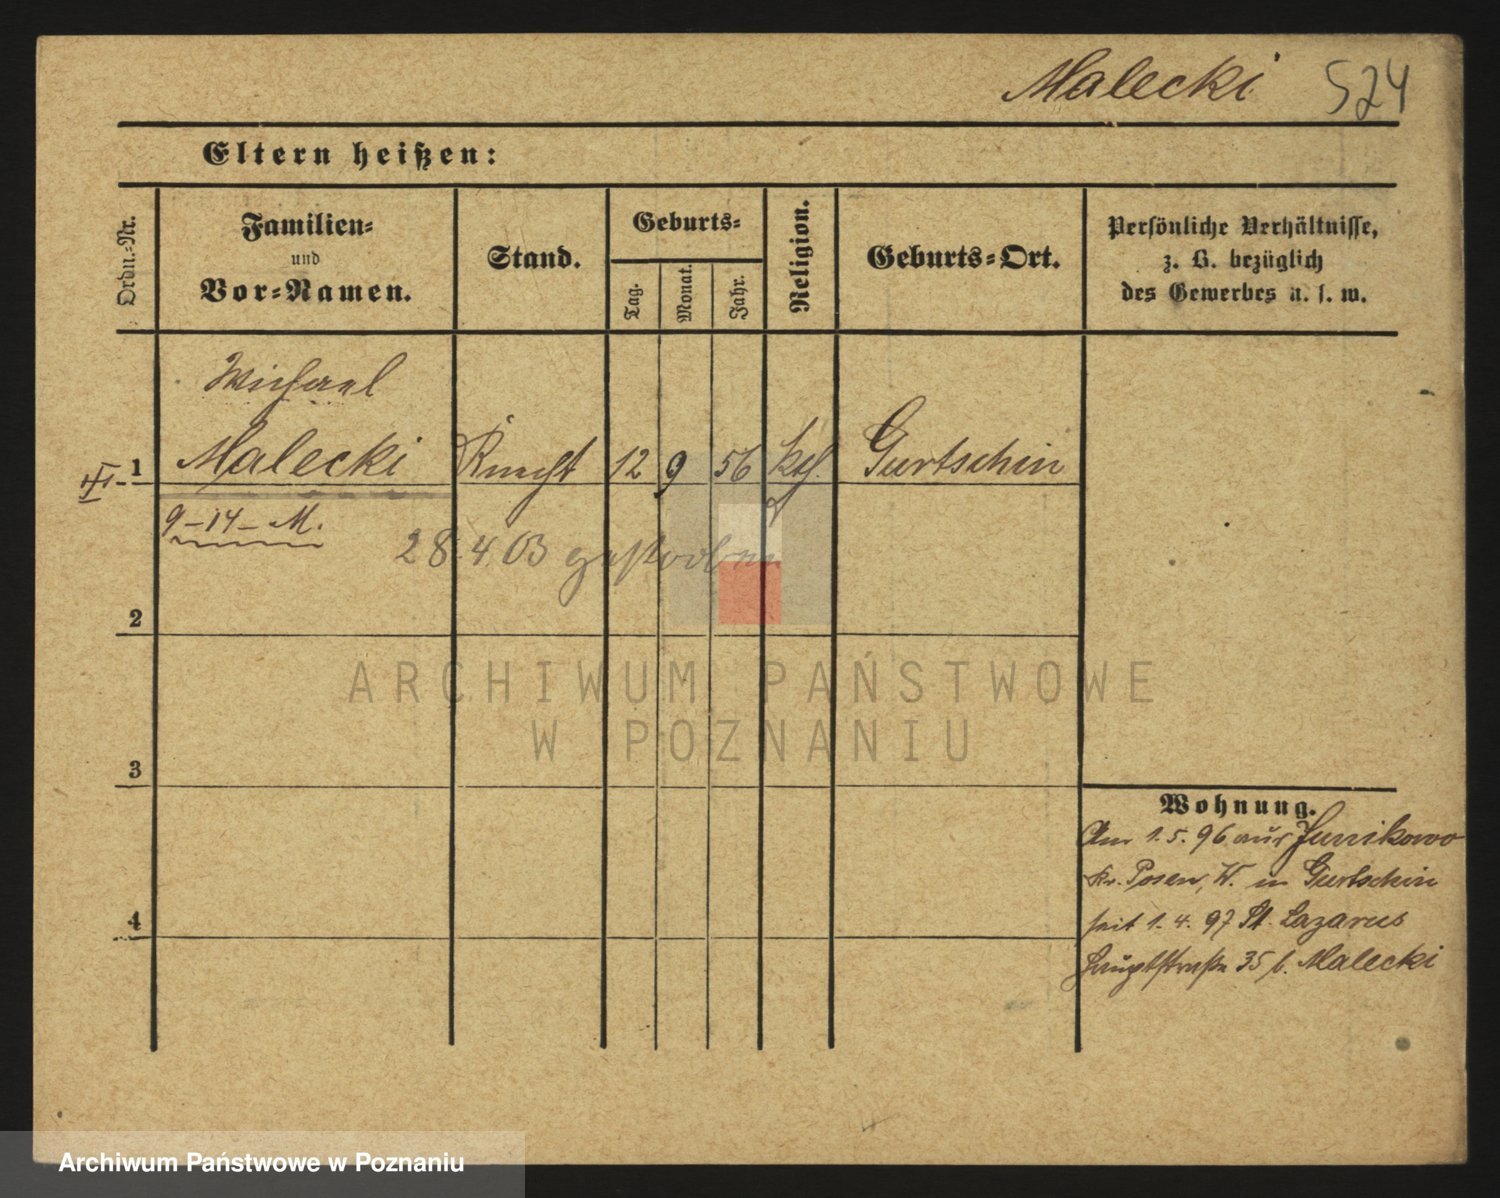 Malecki 524
Eltern heißen:
Ordn.-Nr.
Familien-
und
Vor-Namen.
Stand.
Geburts-
Tag.
Monat.
Jahr.
Religion.
Geburts-Ort.
Persönliche Verhältnisse,
z. B. bezüglich
des Gewerbes u. s. w.
Michael
1 Malecki Knecht 12 9 56 kth. Gurtschin
9-14-M.
28.4.03 gestorben
2
3
4
Wohnung.
Am 1.5.96 aus Junikowo
Kr. Posen, W. in Gurtschin
seit 1.4.97 St. Lazarus
Hauptstraße 35 b. Malecki
ARCHIWUM PAŃSTWOWE
W POZNANIU
Archiwum Państwowe w Poznaniu